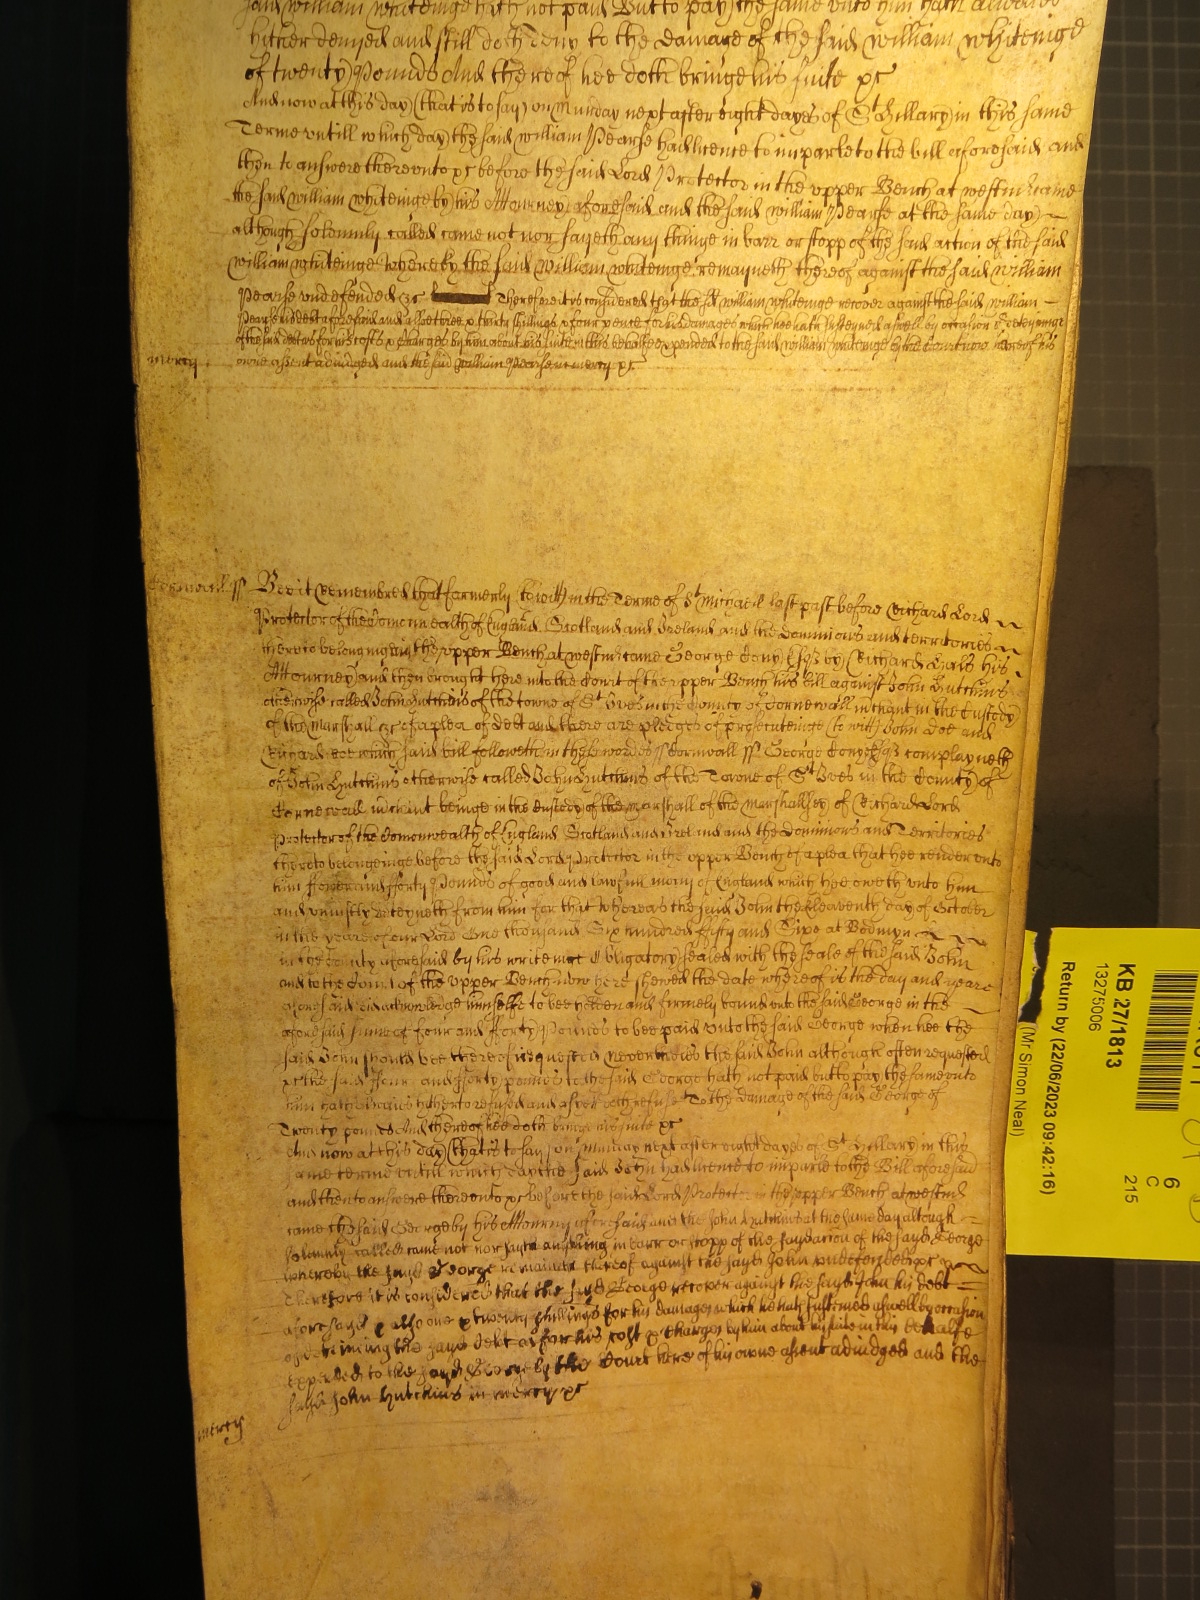 said william whiteinge hath not paid But to pay the same unto him hath alwaies
hither denyed and still doth deny to the damage of the said william whiteinge
of twenty Pounds And thereof hee doth bringe his suite &c
And now at this day (that is to say) on Munday next after eight dayes of St Hillary in this same
Terme untill which day the said william Pearse had licence to imparle to the bill aforesaid and
then to answere thereunto &c before the said Lord Protector in the upper Bench at westmr came
the said william whiteinge by his Attourney aforesaid and the said william Pearse at the same day
although solemnly called came not nor sayeth any thinge in barr or stopp of the said action of the said
william whiteinge whereby the said william whiteinge remayneth thereof against the said william
Pearse undefended &c Therefore it is considered that the sd william whiteinge recover against the said william
Pearse his debt aforesaid and alsoe three & thirty shillings & four pence for his damages which hee hath susteyned aswell by occasion of deteyninge
of the said debt as for his costs & charges by him about his suite in this behalfe expended to the said william whiteinge by the Court now here of his
mercy owne assent adiudged and the said william Pearse in mercy &c
Cornwall ss Bee it Remembred that formerly to witt in the Terme of St Michaell last past before Richard Lord
Protector of the Comonwealth of England Scotland and Ireland and the Dominions and territories
thereto belonginge in the upper Bench at westmr came George Cony Esqr by Richard his
Attourney and then brought here into the Court of the upper Bench his bill against John Hutchins
otherwise called John Hutchins of the towne of St Ives in the County of Cornewall mrchant in the Custody
of the Marshall &c of a plea of debt and there are pledges of prosecuteinge (to witt) John Doe and
Richard Roe which said bill followeth in these wordes ss Cornwall ss George Cony Esqr complayneth
of John Hutchins otherwise called John Hutchins of the Towne of St Ives in the County of
Cornewall mrchant beinge in the custody of the marshall of the Marshallsey of Richard Lord
Protector of the Comonwealth of England Scotland and Ireland and the Dominions and Territories
thereto belongeinge before the said Lord Protector in the upper Bench of a plea that hee render unto
him fower and fforty Pounds of good and lawfull mony of England which hee oweth unto him
and uniustly deteyneth from him for that whereas the said John the Eleaventh day of October
in the yeare of our Lord One thousand Six hundred fifty and Sixe at Bodmyn
in the County aforesaid by his writeinge Obligatory sealed with the seale of the said John
and to the Court of the upper Bench now here shewed the date whereof is the day and yeare
aforesaid did acknowledge himselfe to bee holden and firmely bound unto the said George in the
aforesaid summe of four and fforty Pounds to bee paid unto the said George when hee the
said John should bee thereof requested Neverthelesse the said John although often requested
&c the said ffour and fforty pounds to the said George hath not paid but to pay the same unto
him hath alwaies hitherto refused and as yet doth refuse To the damage of the said George of
Twenty pounds And thereof hee doth bringe his suite &c
And now at this day (that is to say) on munday next after eight dayes of St Hillary in this
same terme untill which day the said John had licence to imparle to the Bill aforesaid
and then to answere thereunto &c before the said Lord Protector in the upper Bench at westmr
came the said George by his Attourney aforesaid and the John Hutchins at the same day although
solemnly called came not nor sayth anything in barr or stopp of the sayd action of the sayd George
whereby the sayd George remaineth thereof against the sayd John undefended &c
Therefore it is considered that the sayd George recover against the sayd John his debt
aforesayd & also one & twenty shillings for his damages which he hath susteined aswell by occasion
of deteining the sayd debt as for his cost & charges by him about his suite in this behalfe
expended to the sayd George by the Court here of his owne assent adiudged and the
sayd John Hutchins in mercy &c
mercy
KB 27/1813
13275006
Return by (22/06/2023 09:42:16)
(Mr Simon Neal)
6
C
215